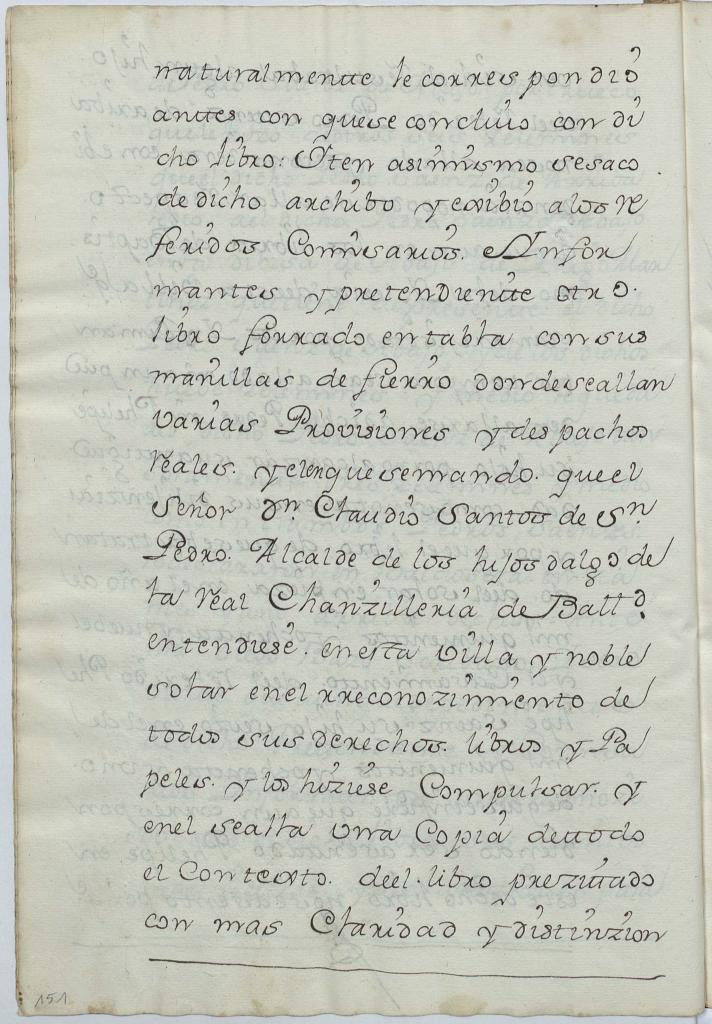 naturalmentte le corres pondio
anttes con que se concluio con di
cho libro: Oten asimismo sesaco
de dicho archibo y exibio a los Re
feridos Comisarios. e Infor
mantes y pretendientte otro.
libro forrado en tabla con sus
manillas de fierro donde seallan
varias Provisiones y des pachos
reales. y el en que se mando. que el
señor Dn. Claudio Santos de Sn.
Pedro. Alcalde de los hijos dalgo de
la real Chanzilleria de Balld.
entendiese. en esta villa y noble
solar en el rreconozimiento de
todos sus derechos. libros y Pa
peles. y los hiziese Compulsar. y
en el sealla una Copia dettodo
el Contexto. deel. libro prezittado
con mas Claridad y distinzion
151